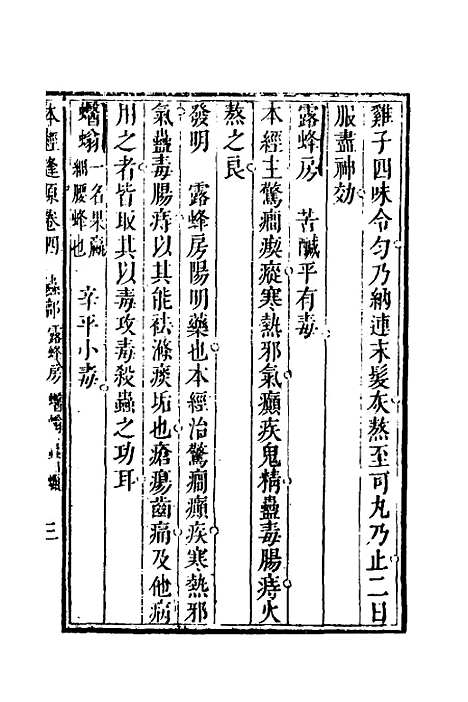 雞子四味令勻乃納連末髮灰熬至可丸乃止二日
服盡神効
露蜂房 苦鹹平有毒
本經主驚癇瘈瘲寒熱邪氣癲疾鬼精蠱毒腸痔火
熬之良
發明 露蜂房陽明藥也本經治驚癇癲疾寒熱邪
氣蠱毒腸痔以其能祛滌痰垢也瘡瘍齒痛及他病
用之者皆取其以毒攻毒殺蟲之功耳
蠮螉 一名果蠃 辛平小毒
細腰蜂也
本經逢原卷四 蟲部 露蜂房 蠮螉 三